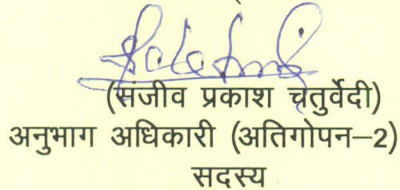 (संजीव प्रकाश चतुर्वेदी)
अनुभाग अधिकारी (अतिगोपन–2)
सदस्य